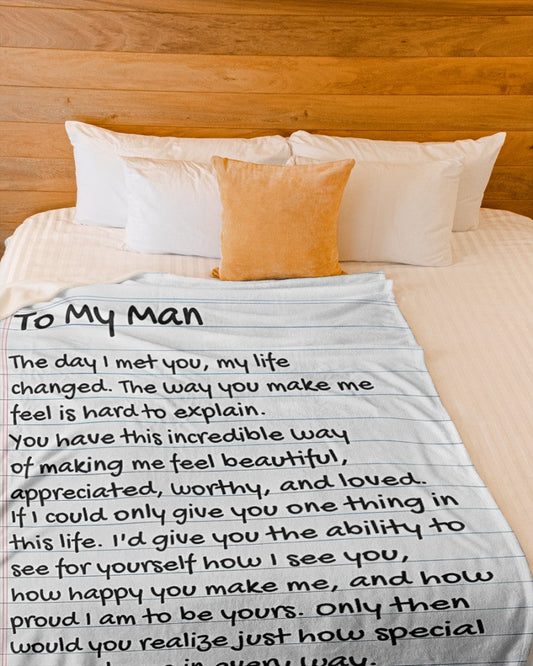 To My Man
The day I met you, my life
changed. The way you make me
feel is hard to explain.
You have this incredible way
of making me feel beautiful,
appreciated, worthy, and loved.
If I could only give you one thing in
this life. I'd give you the ability to
see for yourself how I see you,
how happy you make me, and how
proud I am to be yours. Only then
would you realize just how special
in every way.